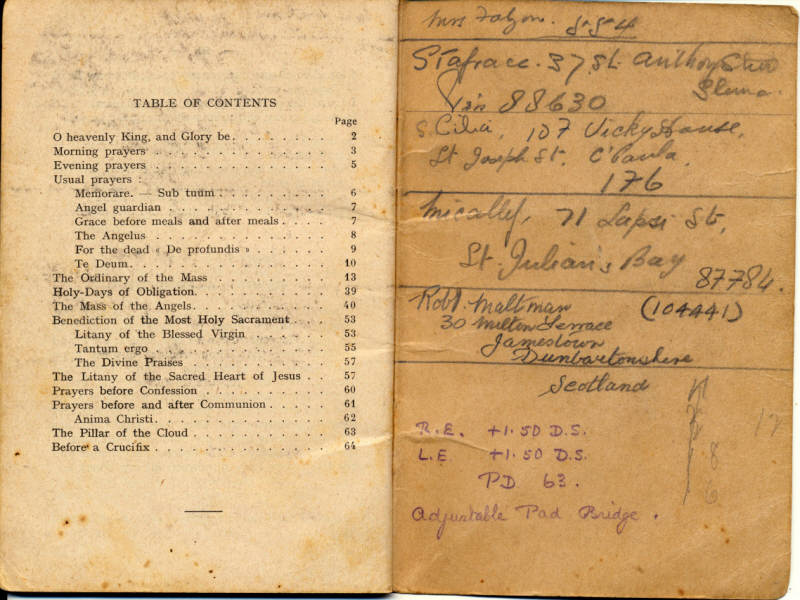 TABLE OF CONTENTS
Page
O heavenly King, and Glory be . . . . . . . . . 2
Morning prayers . . . . . . . . . . . . . . 3
Evening prayers . . . . . . . . . . . . . . 5
Usual prayers :
Memorare. — Sub tuum . . . . . . . . . . 6
Angel guardian . . . . . . . . . . . . . 7
Grace before meals and after meals . . . . . 7
The Angelus . . . . . . . . . . . . . . 8
For the dead « De profundis » . . . . . . . 9
Te Deum . . . . . . . . . . . . . . . . 10
The Ordinary of the Mass . . . . . . . . . . 13
Holy-Days of Obligation. . . . . . . . . . . . 39
The Mass of the Angels . . . . . . . . . . . . 40
Benediction of the Most Holy Sacrament . . . . 53
Litany of the Blessed Virgin . . . . . . . . 53
Tantum ergo . . . . . . . . . . . . . . 55
The Divine Praises . . . . . . . . . . . . 57
The Litany of the Sacred Heart of Jesus . . . 57
Prayers before Confession . . . . . . . . . . 60
Prayers before and after Communion . . . . . 61
Anima Christi. . . . . . . . . . . . . . . 62
The Pillar of the Cloud . . . . . . . . . . . 63
Before a Crucifix . . . . . . . . . . . . . . 64
Mrs Falzon. 554
37, St. Anthony
Sliema.
88630
S. Cilia, 107 Vicky House,
St Joseph St.
176
Micallef, 71 St,
St. Julian's Bay
87784.
Robt. Maltman (104441)
30 Milton Terrace
Jamestown
Dunbartonshire
Scotland
R.E. +1.50 D.S.
L.E +1.50 D.S.
PD 63.
Adjustable Pad Bridge.